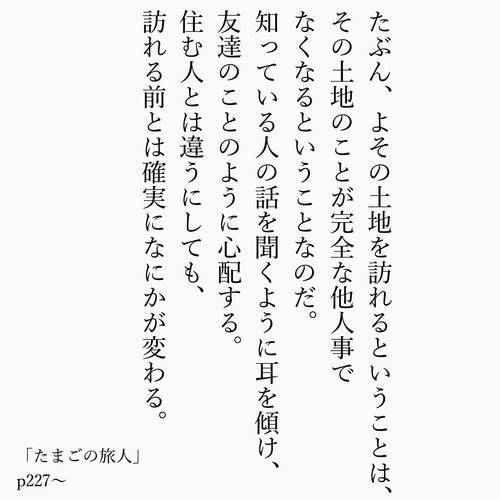 たぶん、よその土地を訪れるということは、
その土地のことが完全な他人事で
なくなるということなのだ。
知っている人の話を聞くように耳を傾け、
友達のことのように心配する。
住む人とは違うにしても、
訪れる前とは確実になにかが変わる。
「たまごの旅人」
p227〜